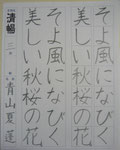 そよ風になびく
美しい秋桜の花
そよ風になびく
美しい秋桜の花
青山夏蓮